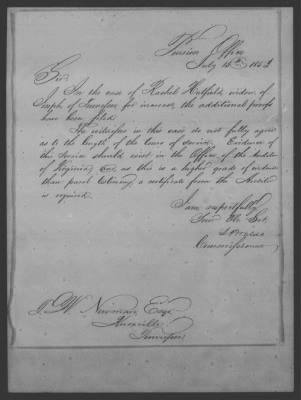 Pension Office
July 15th 1852
Sir.
In the case of Rachel Hatfield, widow of
Joseph of Tennessee for increase, the additional proofs
have been filed.
The witnesses in this case do not fully agree
as to the length of the term of service. Evidence of
the Service should exist in the Office of the Auditor
of Virginia, and as this is a higher grade of evidence
than parol testimony, a certificate from the Auditor
is required.
I am respectfully
Your Ob. Svt.
Commissioner
W Newman Esqr
Knoxville
Tennessee